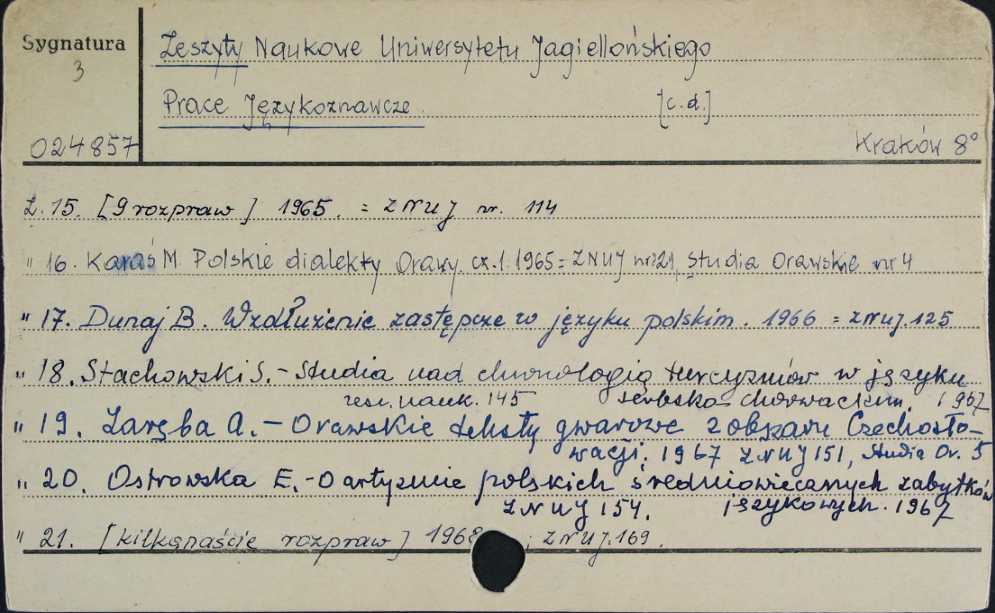 Sygnatura
3
024857
Zeszyty Naukowe Uniwersytetu Jagiellońskiego
Prace Językoznawcze [c.d.]
Kraków 8°
Z. 15. [9 rozpraw] 1965. = ZNUJ nr. 114
" 16. Karaś M. Polskie dialekty Orawy. cz.1. 1965 = ZNUJ nr 121, Studia Orawskie nr 4
" 17. Dunaj B. Wzdłużenie zastępcze w języku polskim. 1966 = ZNUJ. 125
" 18. Stachowski S. - Studia nad chronologią turcyzmów w języku
zesz. nauk. 145 serbsko-chorwackim. 1967
" 19. Zaręba A. - Orawskie teksty gwarowe z obszaru Czechosło-
wacji. 1967 ZNUJ 151, Studia Or. 5
" 20. Ostrowska E. - O artyzmie polskich średniowiecznych zabytków
ZNUJ 154. językowych. 1967
" 21. [kilkanaście rozpraw] 1968 ; ZNUJ. 169.